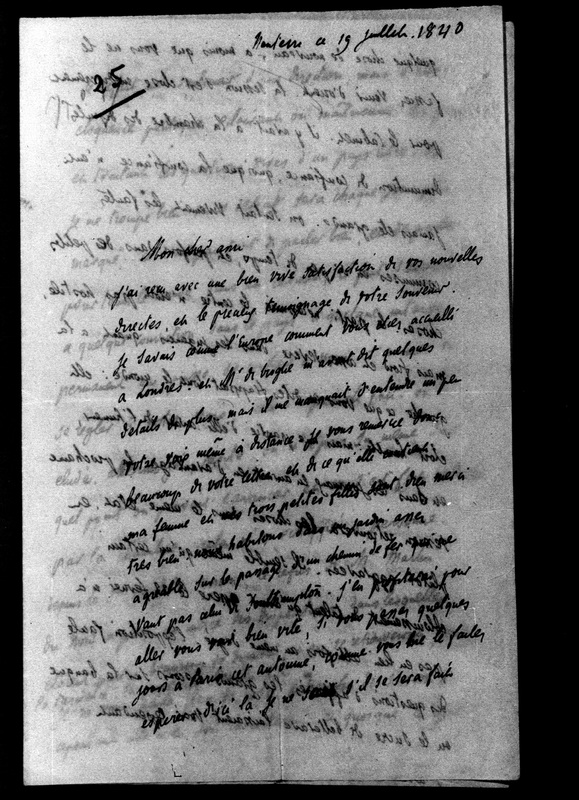 Nanterre ce 19 juillet. 1840
25
Mon cher ami
j'ai reçu avec une bien vive satisfaction de vos nouvelles
directes, et le précieux témoignage de votre souvenir
je savais comme l'Europe comment vous étiez accueilli
à Londres: et Mr de Broglie m'en avait dit quelques
détails de plus, mais il me manquait d'entendre un peu
votre voix même à distance. je vous remercie donc
beaucoup de votre lettre et de ce qu'elle
ma femme et mes trois petites filles vont dieu merci
très bien. nous habitons un jardin assez
agréable sur le passage d'un chemin de fer qui ne
vaut pas celui de Southampton. j'en profiterai pour
aller vous voir bien vite, si vous passez quelques
jours à Paris cet automne, comme vous me le faites
espérer. d'ici là je ne sais s'il se sera fait